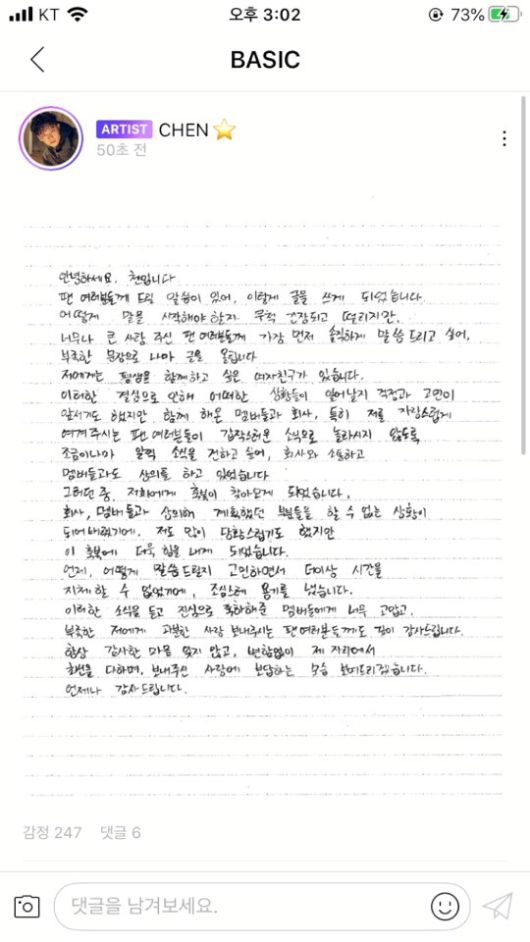 KT 오후 3:02 73%
BASIC
ARTIST CHEN⭐
50초 전
안녕하세요. 첸입니다
팬 여러분들께 드릴 말씀이 있어, 이렇게 글을 쓰게 되었습니다.
어떻게 말을 시작해야 할지 무척 긴장되고 떨리지만,
너무나 큰 사랑 주신 팬 여러분들께 가장 먼저 솔직하게 말씀드리고 싶어,
부족한 문장으로 나마 글을 올립니다
저에게는 평생을 함께하고 싶은 여자친구가 있습니다.
이러한 결심으로 인해 어떠한 상황들이 일어날지 걱정과 고민이
앞서기도 했지만 함께 해온 멤버들과 회사, 특히 저를 자랑스럽게
여겨주시는 팬 여러분들이 갑작스러운 소식으로 놀라시지 않도록
조금이나마 일찍 소식을 전하고 싶어, 회사와 소통하고
멤버들과도 상의를 하고 있었습니다
그러던 중, 저희에게 축복이 찾아오게 되었습니다.
회사, 멤버들과 상의해 계획했던 부분들을 할 수 없는 상황이
되어버렸기에, 저도 많이 당황스럽기도 했지만
이 축복에 더욱 힘을 내게 되었습니다.
언제, 어떻게 말씀드릴지 고민하면서 더이상 시간을
지체할 수 없었기에, 조심스레 용기를 냈습니다.
이러한 소식을 듣고 진심으로 축하해준 멤버들에게 너무 고맙고,
부족한 저에게 과분한 사랑 보내주시는 팬 여러분들께도 깊이 감사드립니다.
항상 감사한 마음 잊지 않고, 변함없이 제 자리에서
최선을 다하며, 보내주신 사랑에 보답하는 모습 보여드리겠습니다.
언제나 감사드립니다.
감정 247 댓글 6
댓글을 남겨보세요.